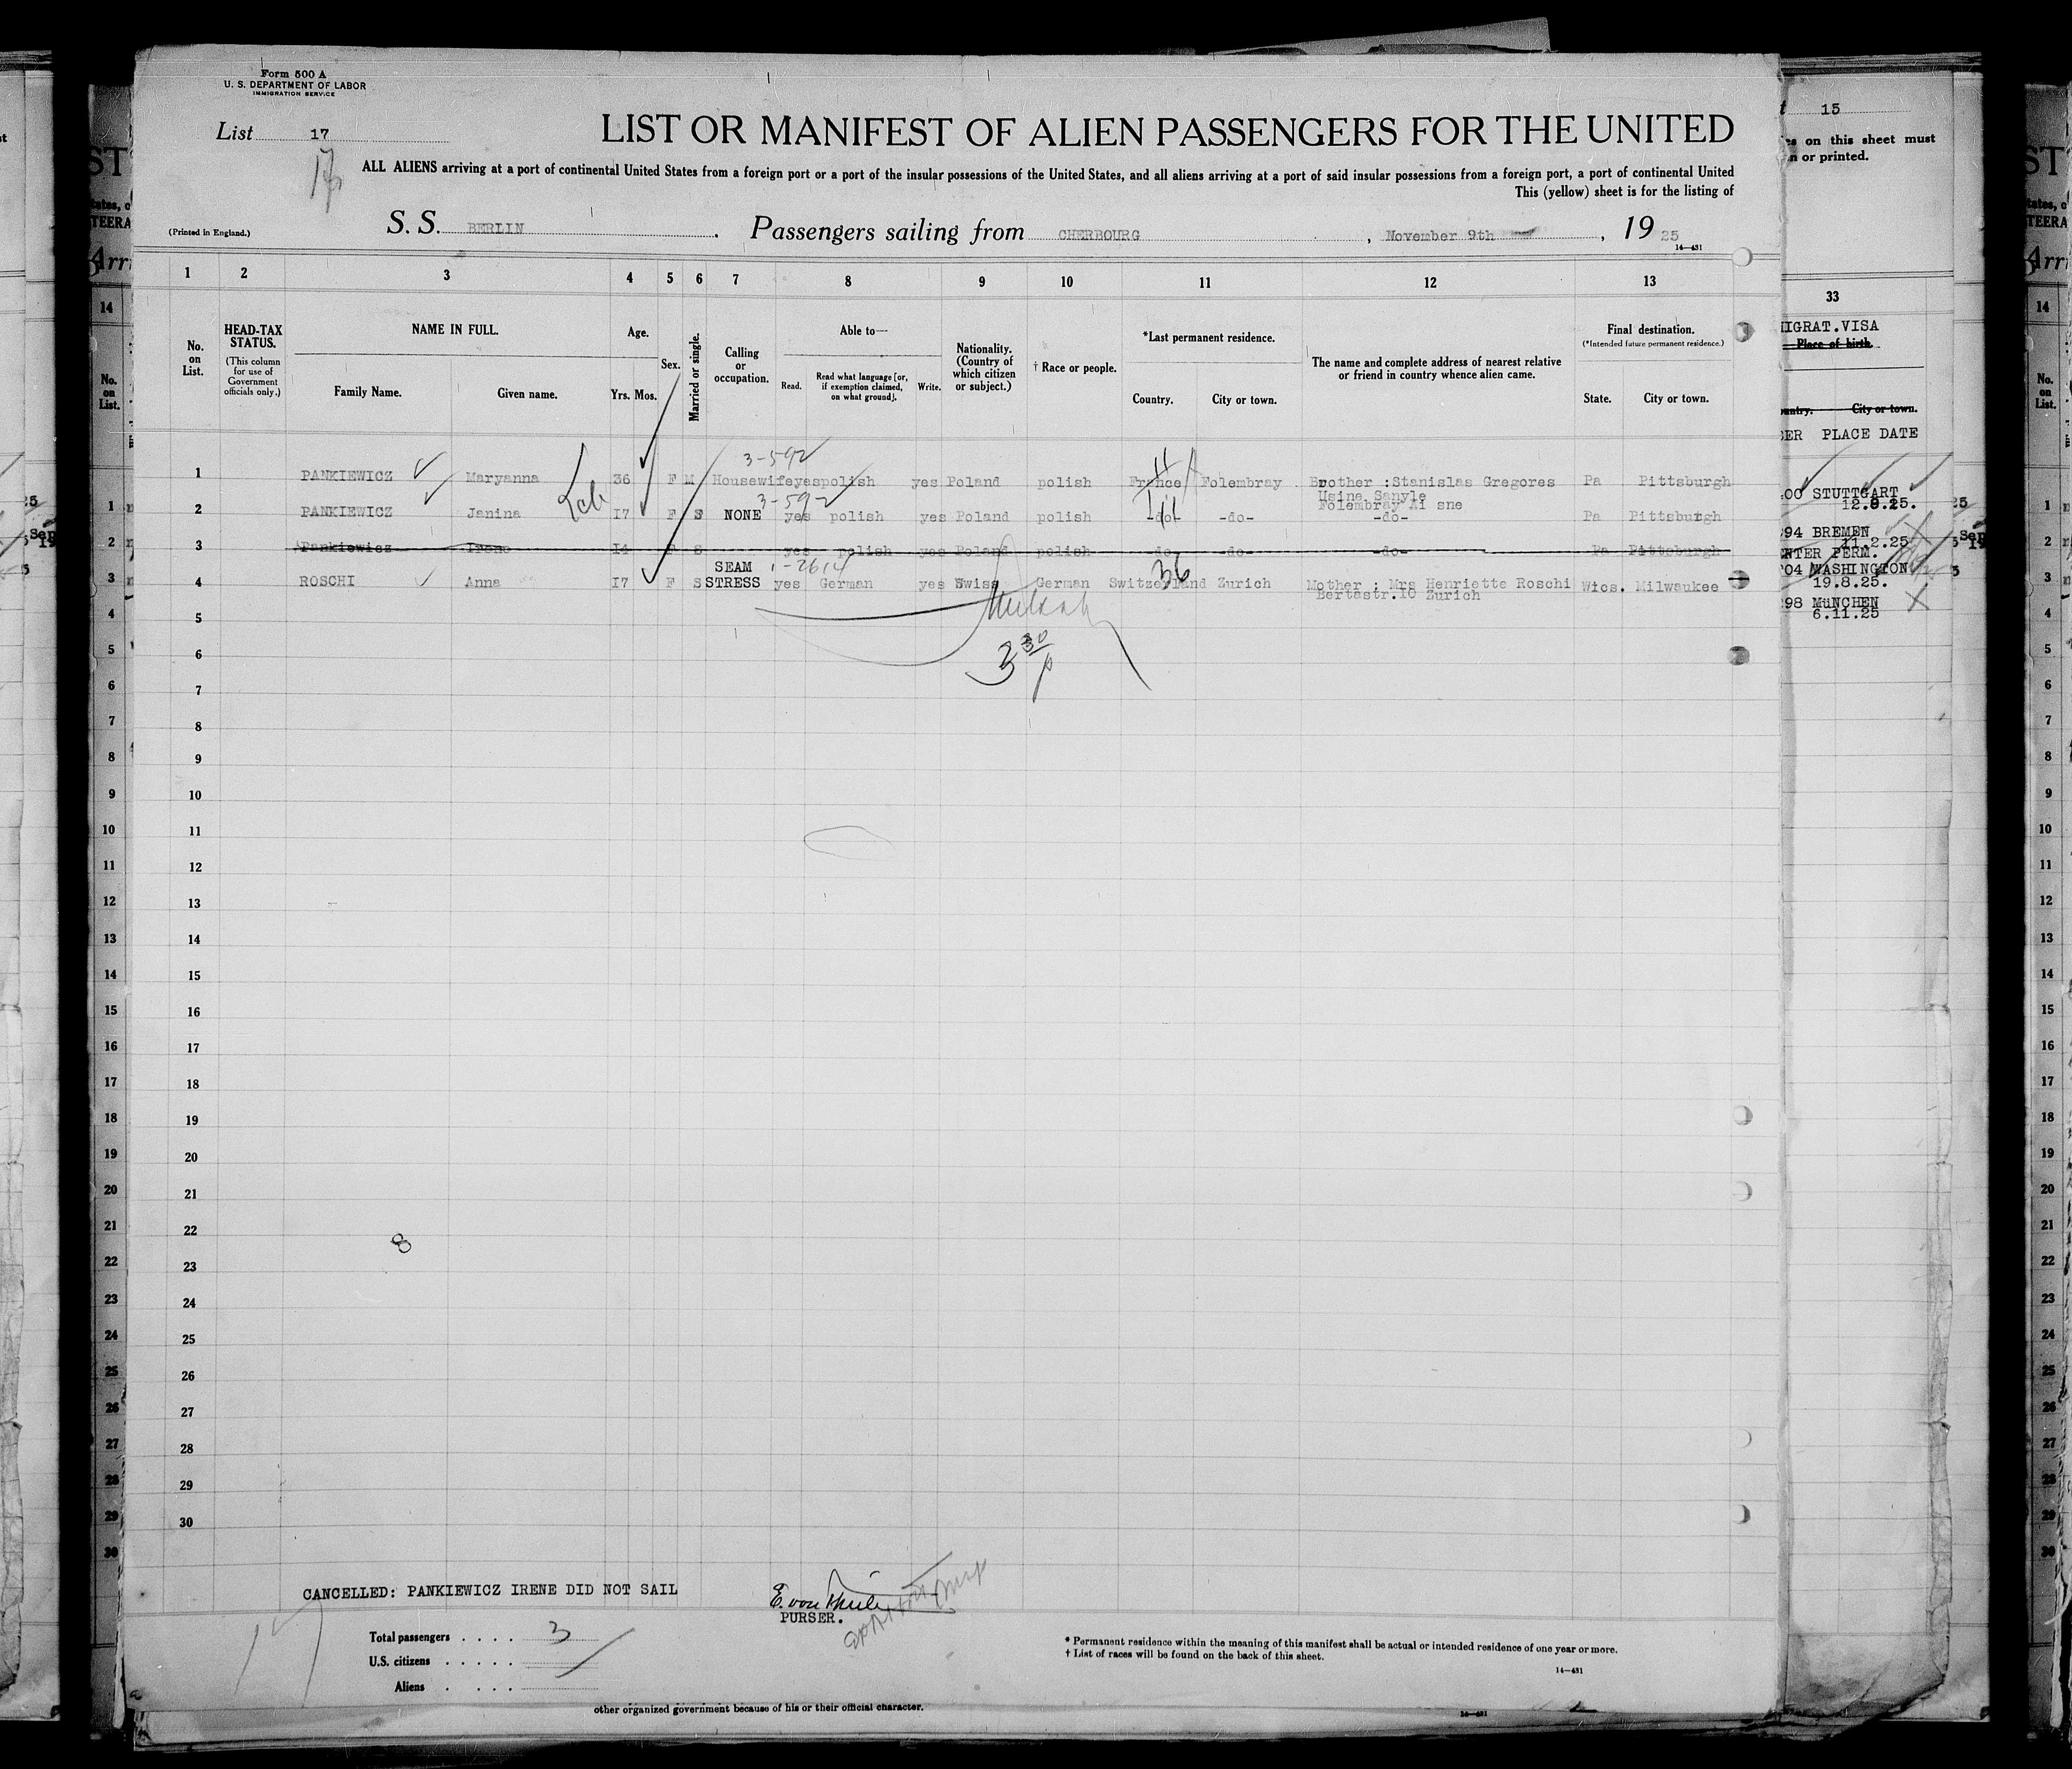 Form 500 A
U. S. DEPARTMENT OF LABOR
IMMIGRATION SERVICE
List 17
17
LIST OR MANIFEST OF ALIEN PASSENGERS FOR THE UNITED
ALL ALIENS arriving at a port of continental United States from a foreign port or a port of the insular possessions of the United States, and all aliens arriving at a port of said insular possessions from a foreign port, a port of continental United
This (yellow) sheet is for the listing of
(Printed in England.)
S. S. BERLIN . Passengers sailing from CHERBOURG , November 9th , 19 25
14—431
1 2 3 4 5 6 7 8 9 10 11 12 13
No. on List.
HEAD-TAX STATUS.
(This column for use of Government officials only.)
NAME IN FULL.
Family Name. Given name.
Age.
Yrs. Mos.
Sex.
Married or single.
Calling or occupation.
Able to—
Read. Read what language [or, if exemption claimed, on what ground]. Write.
Nationality. (Country of which citizen or subject.)
† Race or people.
*Last permanent residence.
Country. City or town.
The name and complete address of nearest relative or friend in country whence alien came.
Final destination.
(*Intended future permanent residence.)
State. City or town.
3-592
1 PANKIEWICZ Maryanna 36 F M Housewife yes polish yes Poland polish France Folembray Brother :Stanislas Gregores Pa Pittsburgh
Usine Sanyle
Folembray Ai sne
3-592
2 PANKIEWICZ Janina I7 F S NONE yes polish yes Poland polish -do- -do- -do- Pa Pittsburgh
3 Pankiewicz Irene I4 F S yes polish yes Poland polish -do- -do- -do- Pa Pittsburgh
SEAM
4 ROSCHI Anna I7 F S STRESS yes German yes Swiss German Switzerland Zurich Mother : Mrs Henriette Roschi Wics. Milwaukee
36
Bertastr.IO Zurich
5
3 30 p
6
7
8
9
10
11
12
13
14
15
16
17
18
19
20
21
22
8
23
24
25
26
27
28
29
30
CANCELLED: PANKIEWICZ IRENE DID NOT SAIL
PURSER.
17
Total passengers . . . . 3
U.S. citizens . . . . .
Aliens . . . .
* Permanent residence within the meaning of this manifest shall be actual or intended residence of one year or more.
† List of races will be found on the back of this sheet.
14—431
other organized government because of his or their official character.
14—431
15
on this sheet must
n or printed.
33
MIGRAT.VISA
Place of birth.
City or town.
PLACE DATE
00 STUTTGART
12.9.25.
94 BREMEN
11.2.25
PERM.
04 WASHINGTON
19.8.25.
98 MüNCHEN
6.11.25
14
No. on List.
1
2
3
4
5
6
7
8
9
10
11
12
13
14
15
16
17
18
19
20
21
22
23
24
25
26
27
28
29
30